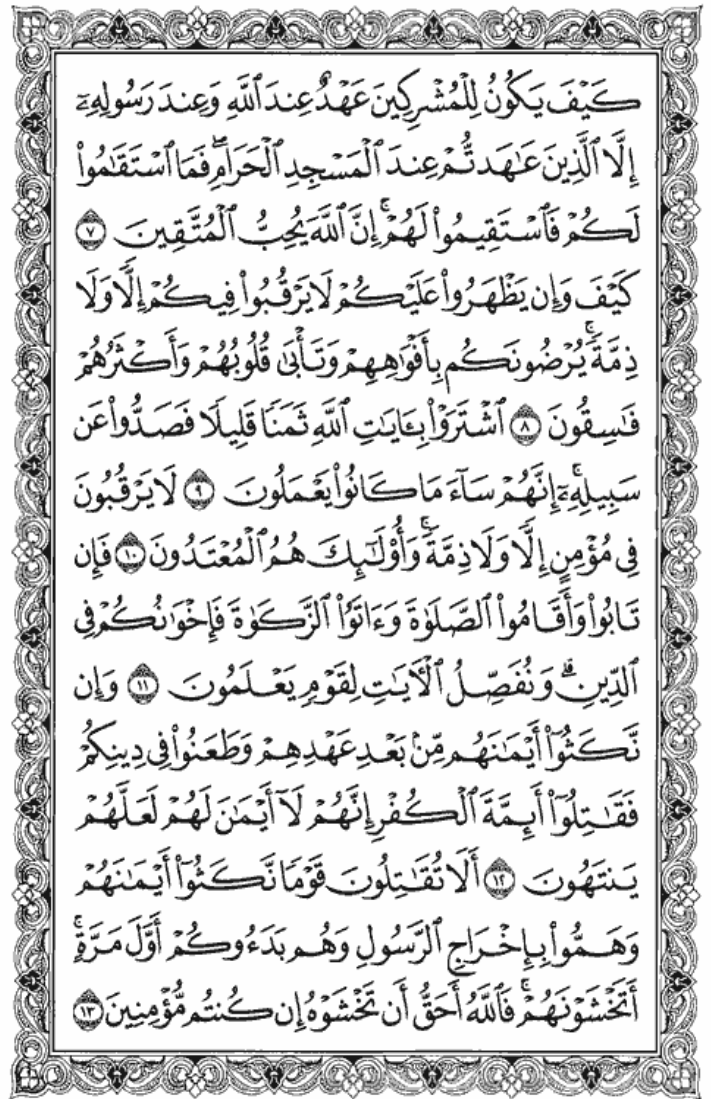 كَيْفَ يَكُونُ لِلْمُشْرِكِينَ عَهْدٌ عِندَ ٱللَّهِ وَعِندَ رَسُولِهِۦٓ
إِلَّا ٱلَّذِينَ عَٰهَدتُّمْ عِندَ ٱلْمَسْجِدِ ٱلْحَرَامِ ۖ فَمَا ٱسْتَقَٰمُوا۟
لَكُمْ فَٱسْتَقِيمُوا۟ لَهُمْ ۚ إِنَّ ٱللَّهَ يُحِبُّ ٱلْمُتَّقِينَ ٧
كَيْفَ وَإِن يَظْهَرُوا۟ عَلَيْكُمْ لَا يَرْقُبُوا۟ فِيكُمْ إِلًّا وَلَا
ذِمَّةً ۚ يُرْضُونَكُم بِأَفْوَٰهِهِمْ وَتَأْبَىٰ قُلُوبُهُمْ وَأَكْثَرُهُمْ
فَٰسِقُونَ ٨ ٱشْتَرَوْا۟ بِـَٔايَٰتِ ٱللَّهِ ثَمَنًا قَلِيلًا فَصَدُّوا۟ عَن
سَبِيلِهِۦٓ ۚ إِنَّهُمْ سَآءَ مَا كَانُوا۟ يَعْمَلُونَ ٩ لَا يَرْقُبُونَ
فِى مُؤْمِنٍ إِلًّا وَلَا ذِمَّةً ۚ وَأُو۟لَٰٓئِكَ هُمُ ٱلْمُعْتَدُونَ ١٠ فَإِن
تَابُوا۟ وَأَقَامُوا۟ ٱلصَّلَوٰةَ وَءَاتَوُا۟ ٱلزَّكَوٰةَ فَإِخْوَٰنُكُمْ فِى
ٱلدِّينِ ۗ وَنُفَصِّلُ ٱلْـَٔايَٰتِ لِقَوْمٍ يَعْلَمُونَ ١١ وَإِن
نَّكَثُوٓا۟ أَيْمَٰنَهُم مِّنۢ بَعْدِ عَهْدِهِمْ وَطَعَنُوا۟ فِى دِينِكُمْ
فَقَٰتِلُوٓا۟ أَئِمَّةَ ٱلْكُفْرِ ۙ إِنَّهُمْ لَآ أَيْمَٰنَ لَهُمْ لَعَلَّهُمْ
يَنتَهُونَ ١٢ أَلَا تُقَٰتِلُونَ قَوْمًا نَّكَثُوٓا۟ أَيْمَٰنَهُمْ
وَهَمُّوا۟ بِإِخْرَاجِ ٱلرَّسُولِ وَهُم بَدَءُوكُمْ أَوَّلَ مَرَّةٍ ۚ
أَتَخْشَوْنَهُمْ ۚ فَٱللَّهُ أَحَقُّ أَن تَخْشَوْهُ إِن كُنتُم مُّؤْمِنِينَ ١٣